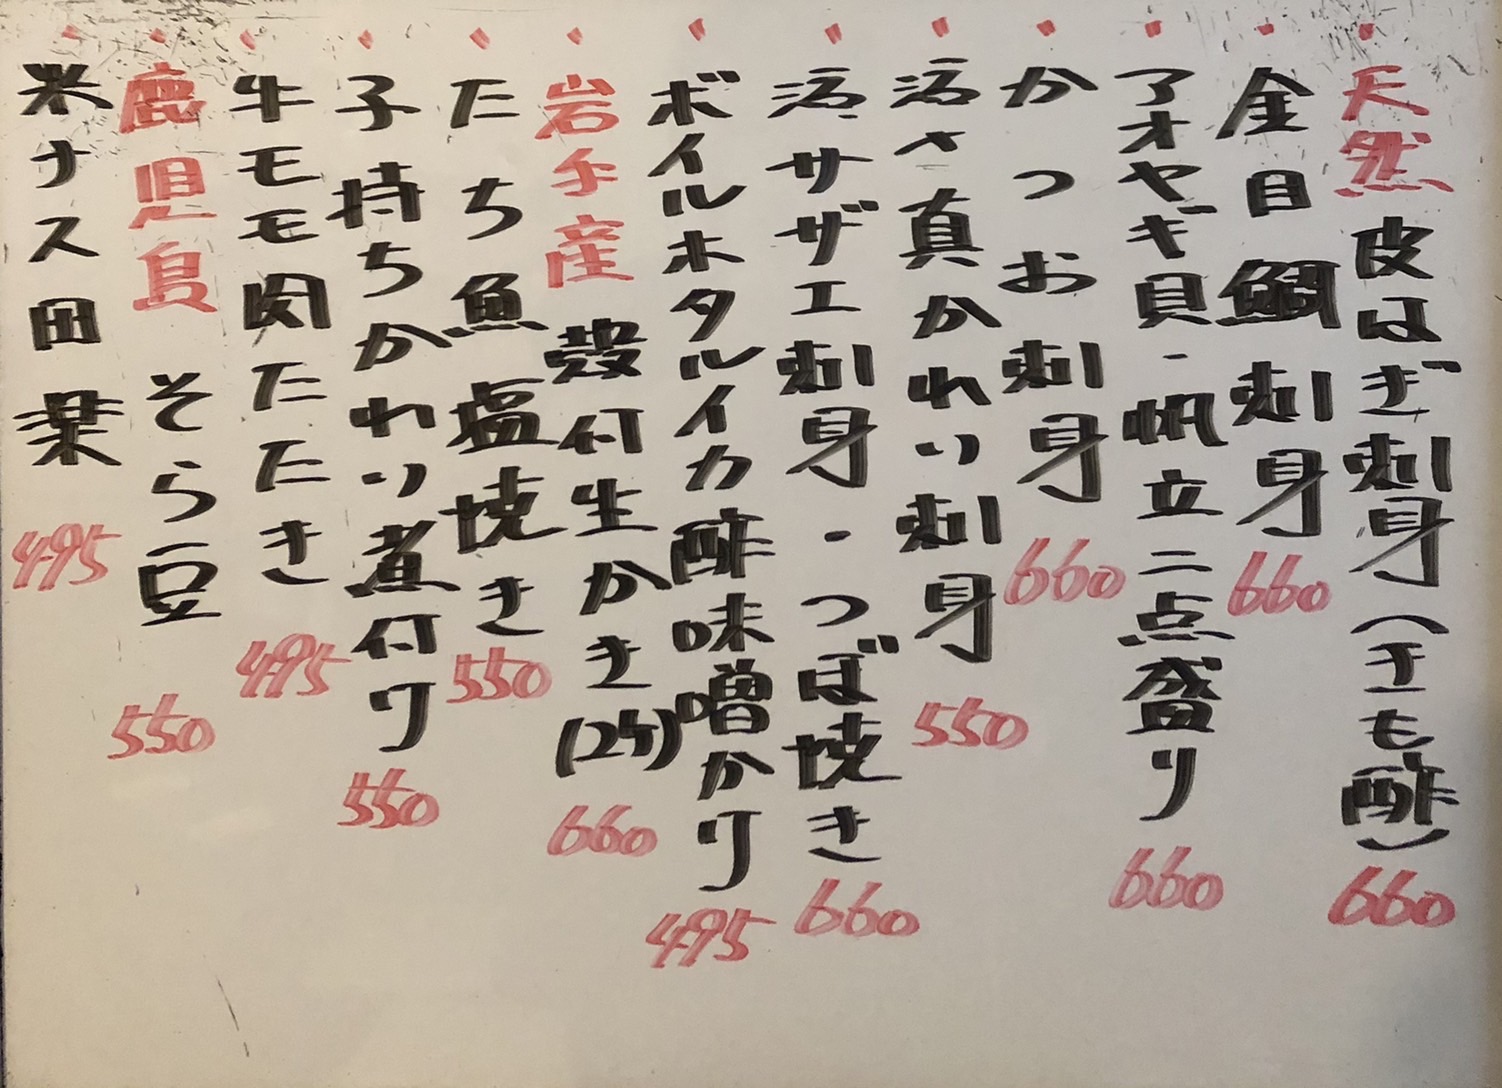 ・天然 皮はぎ刺身(きも酢) 660
・金目鯛刺身 660
・アオヤギ貝・帆立二点盛り 660
・かつお刺身 660
・活〆真かれい刺身 550
・活サザエ刺身・つぼ焼き 660
・ボイルホタルイカ酢味噌かけ 495
・岩手産 殻付生かき(2ケ) 660
・たち魚塩焼き 550
・子持ちかれい煮付け 550
・牛モモ肉たたき 495
・鹿児島 そら豆 550
・米ナス田楽 495